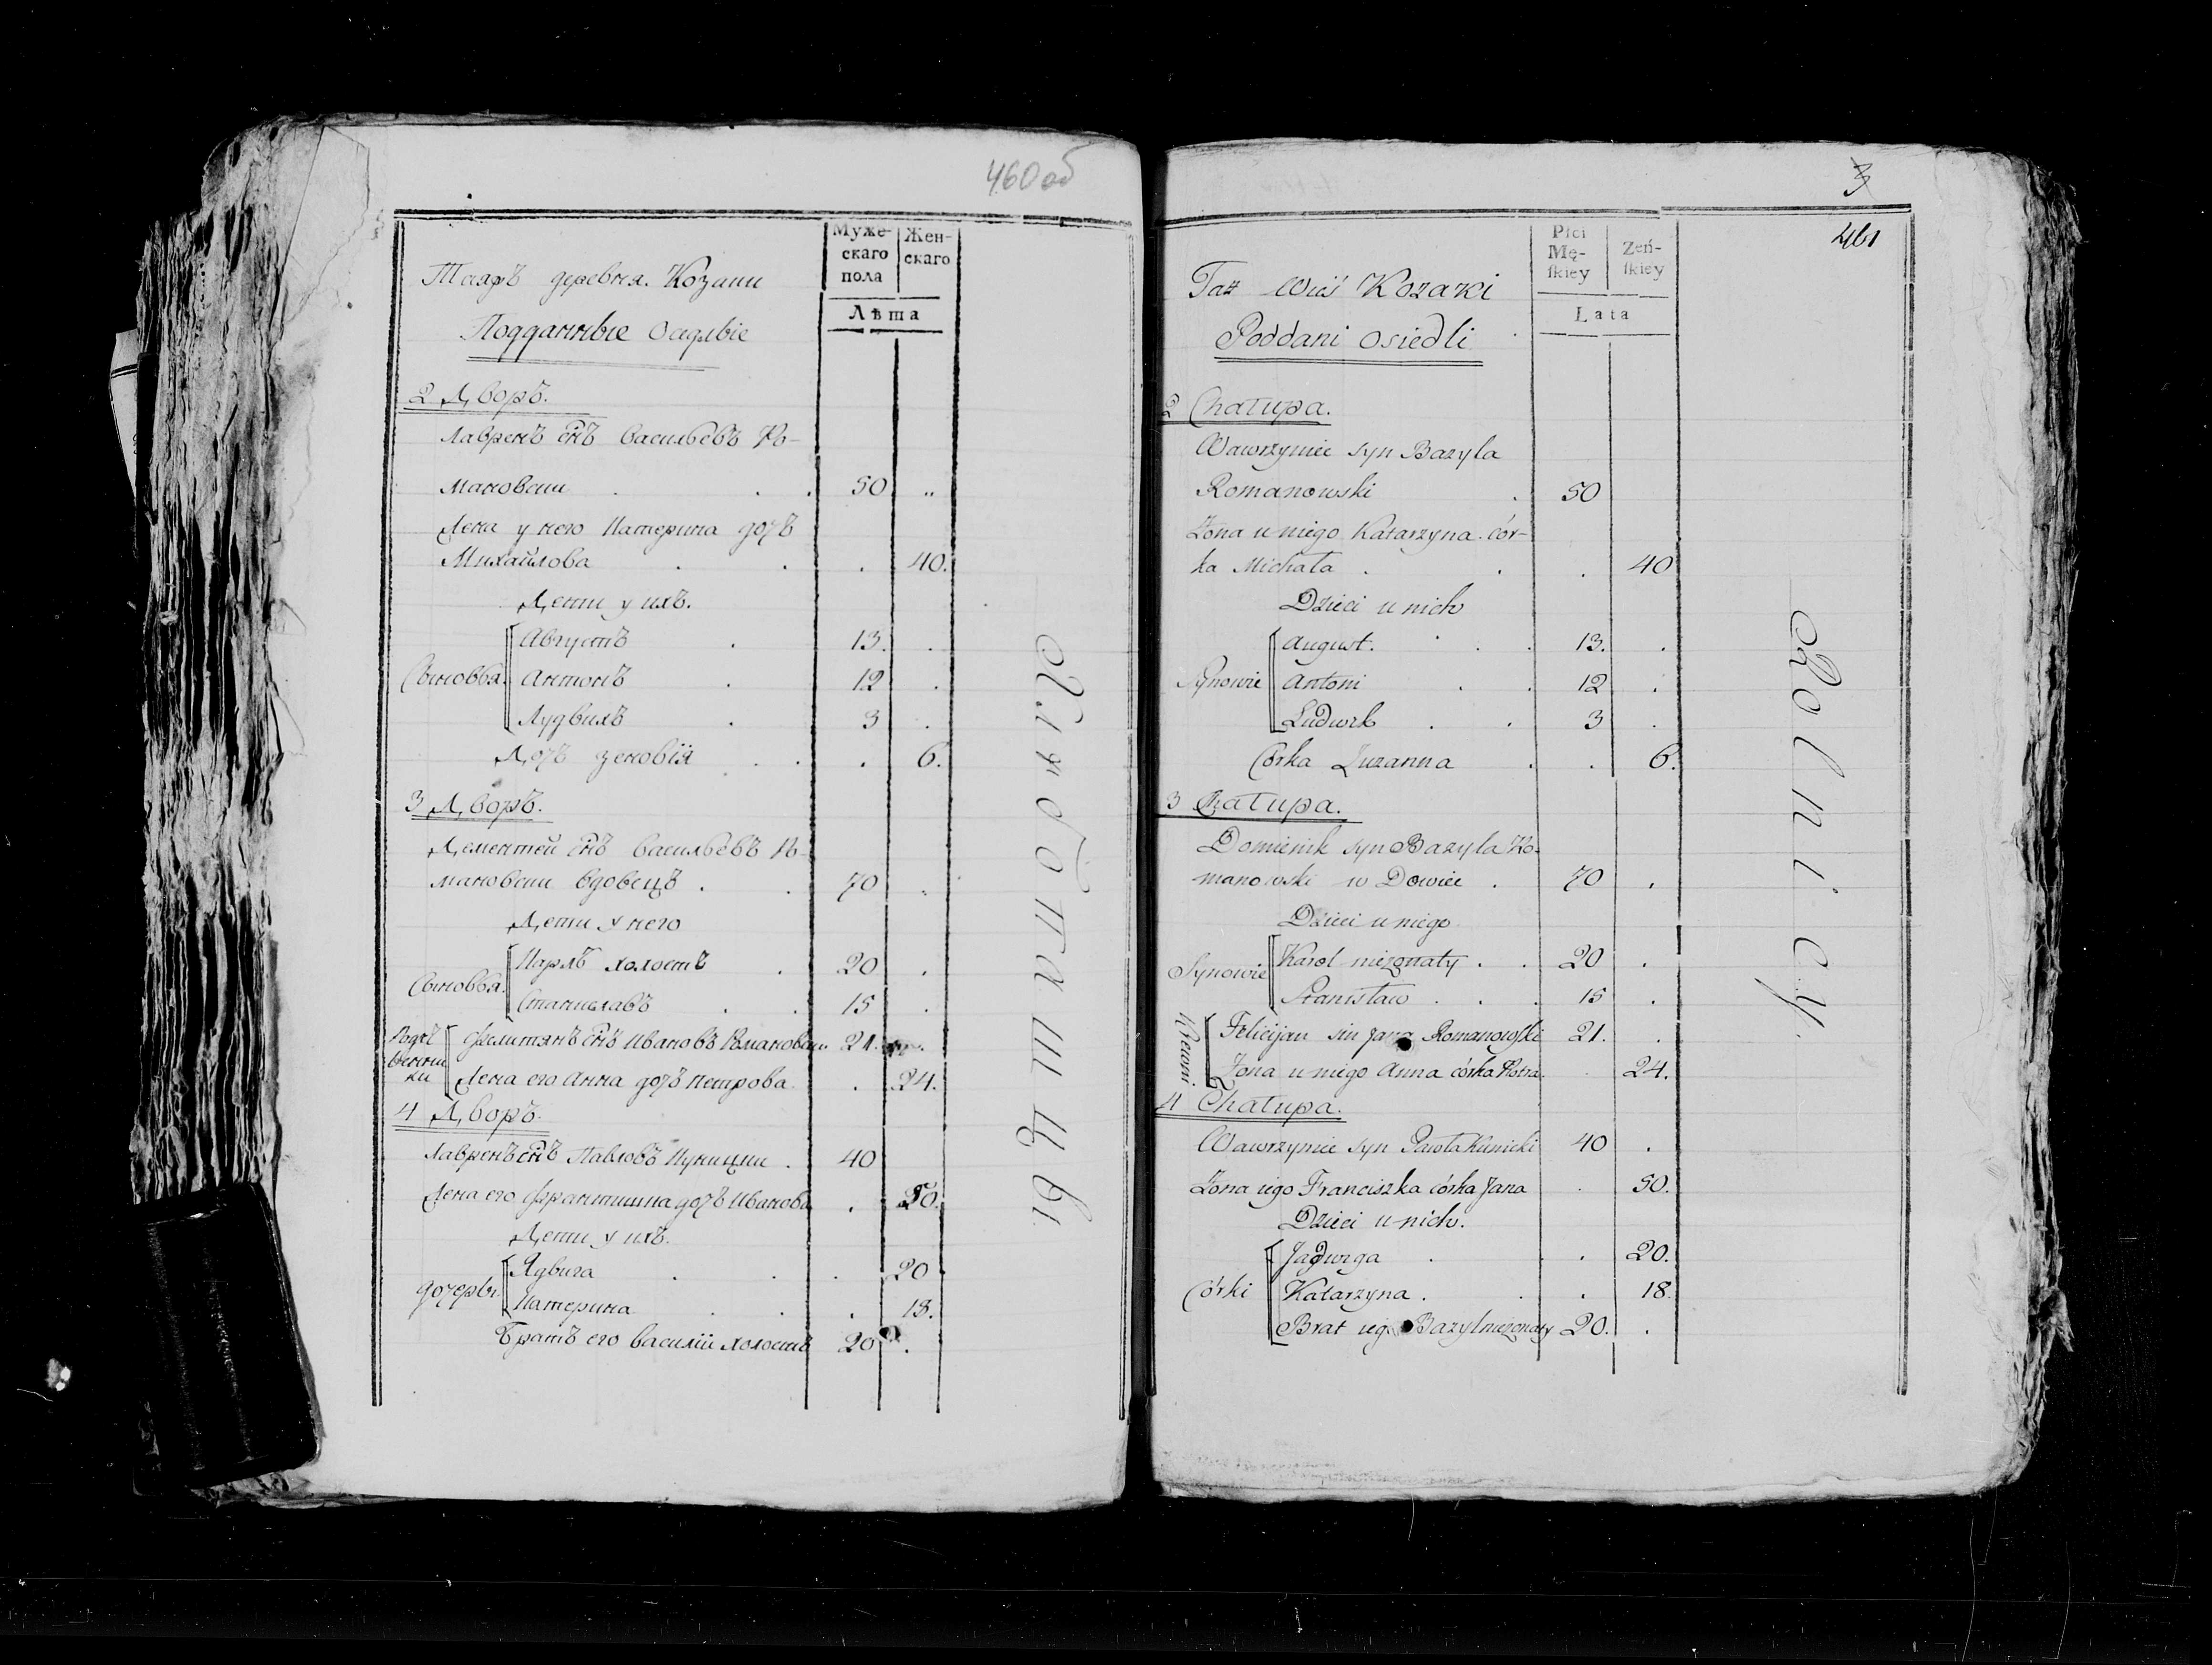 460 об
Муже-
скаго
пола
Жен-
скаго
Лѣта
Таяжъ деревня. Козаки
Подданные осядлые
2 Дворъ.
Лавренъ снъ Васильевъ Ро-
мановски 50
Жена у него Катерина дочъ
Михайлова 40.
Дети у ихъ.
Сыновья. Августъ 13.
Антонъ 12
Лудвихъ 3
Дочъ Зеновія 6.
3 Дворъ.
Дементей снъ Васильевъ Ро-
мановски вдовецъ. 70
Дети у него
Сыновья. Карлъ холостъ 20
Станиславъ 15
Родст
венни
ки
Фелитянъ снъ Ивановъ Романовски 21.
Жена его Анна дочъ Петрова 24.
4 Дворъ.
Лавренъ снъ Павловъ Куницки. 40
Жена его Франтишка дочъ Иванова 50.
Дети у ихъ.
дочери Ядвига 20
Катерина 18.
Братъ его Василій холостъ 20
Хлебопашцы
3
461
Płci
Mę-
skiey
Zeń-
skiey
Lata
Taż Wieś Kozaki
Poddani osiedli
2 Chałupa.
Wawrzyniec syn Bazyla
Romanowski 50
Żona u niego Katarzyna cór-
ka Michała 40
Dzieci u nich
Synowie August. 13.
Antoni 12
Ludwik 3
Córka Zuzanna 6.
3 Chałupa.
Dominik syn Bazyla Ro-
manowski w Dowiec 70
Dzieci u niego
Synowie Karol nieżonaty 20
Stanisław 15
Krewni Felicijan sin Jana Romanowski 21.
Żona u niego Anna córka Piotra 24.
4 Chałupa.
Wawrzyniec syn Pawła Kunicki 40
Żona iego Franciszka córka Jana 50.
Dzieci u nich.
Córki Jadwiga 20.
Katarzyna 18.
Brat iego Bazyl nieżonaty 20.
Rolnicy.